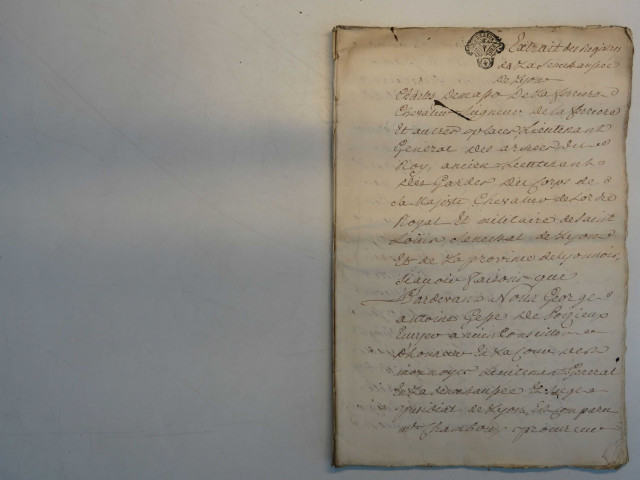 Extrait des Registres
de La Senechaussée
de Lyon
Charles De masso De La ferriere
Chevalier Seigneur de La ferriere
Et autres places Lieutenant
General des armées du
Roy, ancien Lieutenant
des Gardes du Corps de
sa Majesté Chevalier de Lordre
Royal Et militaire de Saint
Louis Senechal de Lyon
Et de La province de Lyonnois,
sçavoir faisons que
Pardevant Nous George
antoine de
Ecuyer ancien Conseiller
d'honneur En La Cour des
monnoyes Lieutenant General
En La Senechaussée Et Siege
presidial de Lyon, Est comparu
me Chambon, procureur